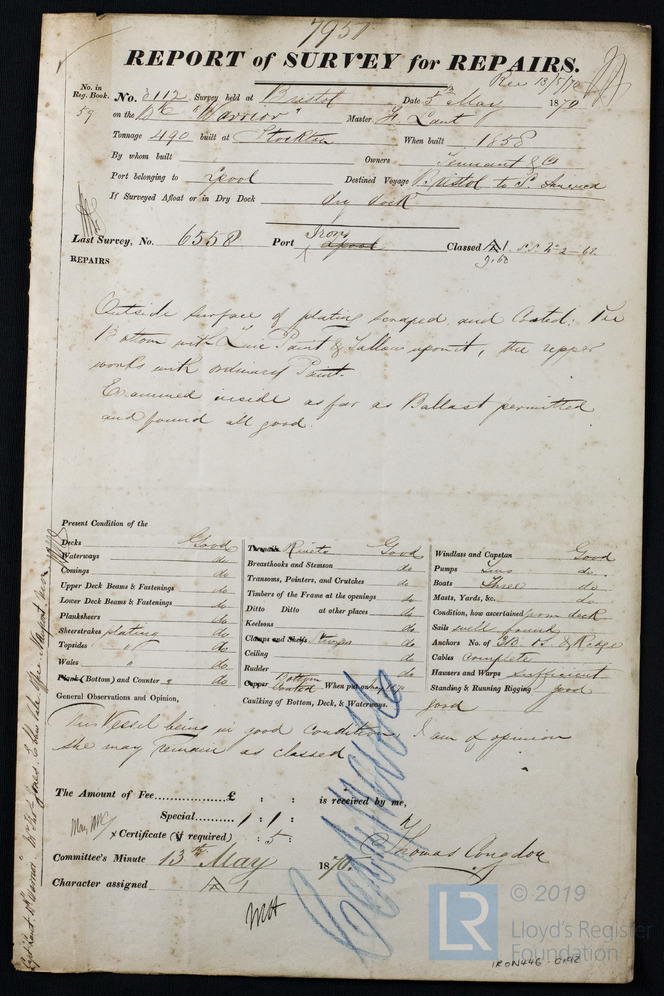 7951
REPORT of SURVEY for REPAIRS.
Rec 13/5/70
No. in Reg. Book.
59
No. 3112 Survey held at Bristol Date 5th May 1870
on the Bk "Warrior" Master F. Lant
Tonnage 490 built at Stockton When built 1858
By whom built Owners Tennant & Co
Port belonging to Lpool Destined Voyage Bristol to
If Surveyed Afloat or in Dry Dock dry dock
Last Survey, No. 6558 Port Lpool Classed A1. S.S. No 2-67
Iron
9,68
REPAIRS
Outside surface of plating scraped and Coated: The
Bottom with Zinc Paint & Tallow upon it, the upper
works with ordinary Paint.
Examined inside as far as Ballast permitted
and found all good.
Present Condition of the
Decks Good
Waterways do
Comings do
Upper Deck Beams & Fastenings do
Lower Deck Beams & Fastenings do
Planksheers do
Sheerstrakes plating do
Topsides " do
Wales " do
Plank (Bottom) and Counter do
Rivets Good
Breasthooks and Stemson do
Transoms, Pointers, and Crutches do
Timbers of the Frame at the openings do
Ditto Ditto at other places do
Keelsons do
Clamps and Shelfs Stringer do
Ceiling do
Rudder do
Copper Bottom Coated When put on May 1870
Caulking of Bottom, Deck, & Waterways. good
Windlass and Capstan Good
Pumps Two do
Boats Three do
Masts, Yards, &c. do
Condition, how ascertained from deck
Sails well found
Anchors No. of 3B. 1S. & Kedge
Cables Complete
Hawsers and Warps sufficient
Standing & Running Rigging good
General Observations and Opinion,
This Vessel being in good condition, I am of opinion
she may remain as classed
The Amount of Fee...............£ : : is received by me,
Special.......... 1 : 1 :
x Certificate (if required) : 5 :
Thomas Congdon
Committee's Minute 13th May 1870.
Character assigned A 1
MH
© 2019
LR
Lloyd's Register
Foundation
IRON446-0192